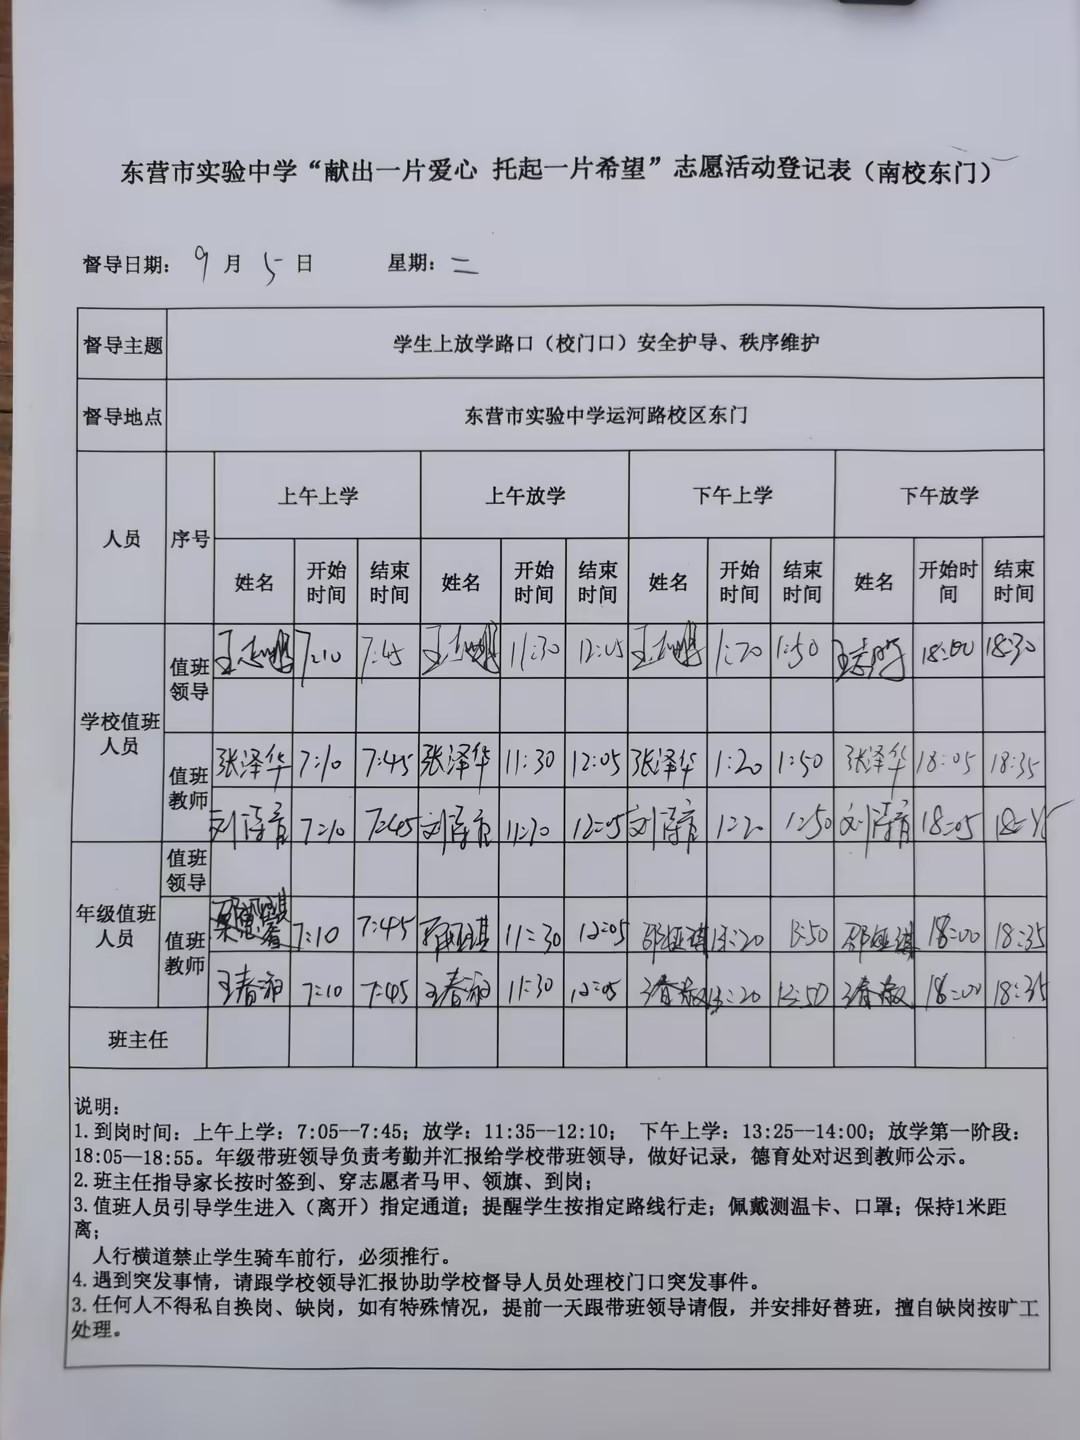 东营市实验中学“献出一片爱心 托起一片希望”志愿活动登记表（南校东门）
督导日期： 9 月 5 日 星期：二
督导主题 学生上放学路口（校门口）安全护导、秩序维护
督导地点 东营市实验中学运河路校区东门
人员 序号 上午上学 上午放学 下午上学 下午放学
姓名 开始时间 结束时间 姓名 开始时间 结束时间 姓名 开始时间 结束时间 姓名 开始时间 结束时间
学校值班人员
值班领导 7:10 7:45 11:30 12:05 1:20 1:50 18:00 18:30
值班教师 张泽华 7:10 7:45 张泽华 11:30 12:05 张泽华 1:20 1:50 张泽华 18:05 18:35
7:10 7:45 12:05 1:20 1:50 18:05
年级值班人员
值班领导
值班教师 7:10 7:45 11:30 12:05 13:20 13:50 18:00 18:35
7:10 7:45 11:30 12:05 13:20 13:50 18:00 18:35
班主任
说明：
1.到岗时间：上午上学：7:05--7:45；放学：11:35--12:10； 下午上学：13:25--14:00；放学第一阶段：
18:05—18:55。年级带班领导负责考勤并汇报给学校带班领导，做好记录，德育处对迟到教师公示。
2.班主任指导家长按时签到、穿志愿者马甲、领旗、到岗；
3.值班人员引导学生进入（离开）指定通道；提醒学生按指定路线行走；佩戴测温卡、口罩；保持1米距
离；
人行横道禁止学生骑车前行，必须推行。
4.遇到突发事情，请跟学校领导汇报协助学校督导人员处理校门口突发事件。
3.任何人不得私自换岗、缺岗，如有特殊情况，提前一天跟带班领导请假，并安排好替班，擅自缺岗按旷工
处理。